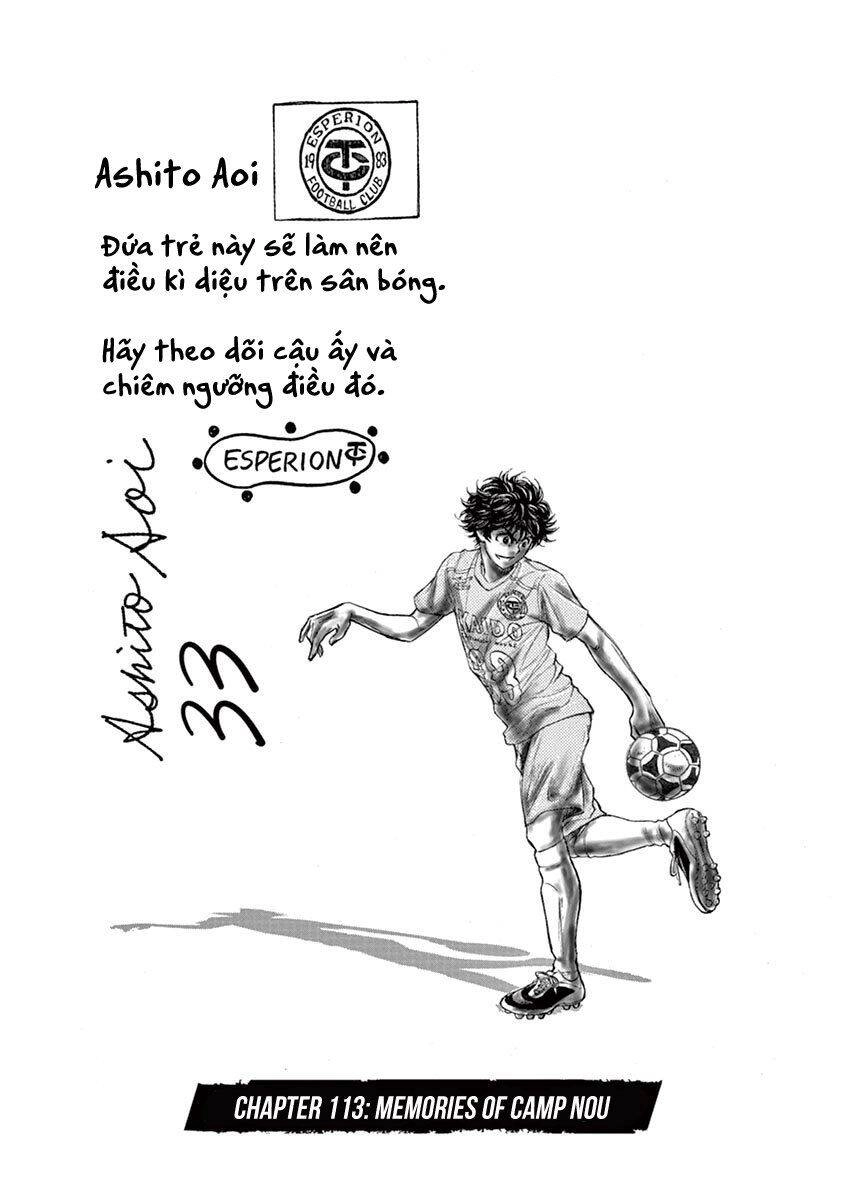 ESPERION
19 TC 83
FOOTBALL CLUB
Ashito Aoi
Đứa trẻ này sẽ làm nên
điều kì diệu trên sân bóng.
Hãy theo dõi cậu ấy và
chiêm ngưỡng điều đó.
ESPERION TC
Ashito Aoi
33
KAIDO
CHAPTER 113: MEMORIES OF CAMP NOU